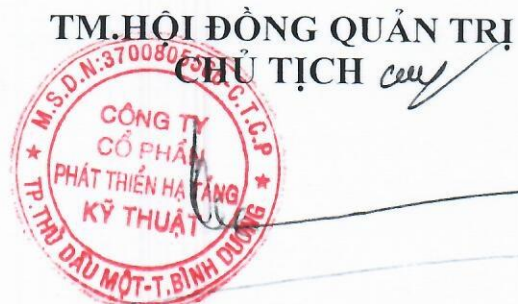 TM.HỘI ĐỒNG QUẢN TRỊ
CHỦ TỊCH
M.S.D.N:3700805 C.T.C.P
CÔNG TY
CỔ PHẦN
PHÁT THIỂN HẠ TẦNG
KỸ THUẬT
TP.THỦ DẦU MỘT-T.BÌNH DƯƠNG